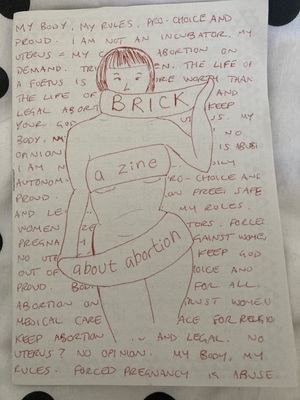 MY BODY, MY RULES. PRO-CHOICE AND
PROUD. I AM NOT AN INCUBATOR. MY
UTERUS = MY ABORTION ON
DEMAND. EN. THE LIFE OF
A FOETUS IS WORTH THAN
THE LIFE OF AND
BRICK
LEGAL ABORT KEEP
YOUR GOD US. MY
BODY, NO
a zine
OPINION IS ABUS
I AM
AUTONOM RO-CHOICE AND
PROUD. ON FREE, SAFE
AND LE MY RULES.
WOMEN TORS. FORCED
PREGNA GAINST WOMEN
NO UTE KEEP GOD
about abortion
OUT OF OICE AND
PROUD. FOR ALL.
ABORTION ON TRUST WOMEN
MEDICAL CARE ACE FOR RELIGIO
KEEP ABORTION AND LEGAL. NO
UTERUS? NO OPINION. MY BODY, MY
RULES. FORCED PREGNANCY IS ABUSE.